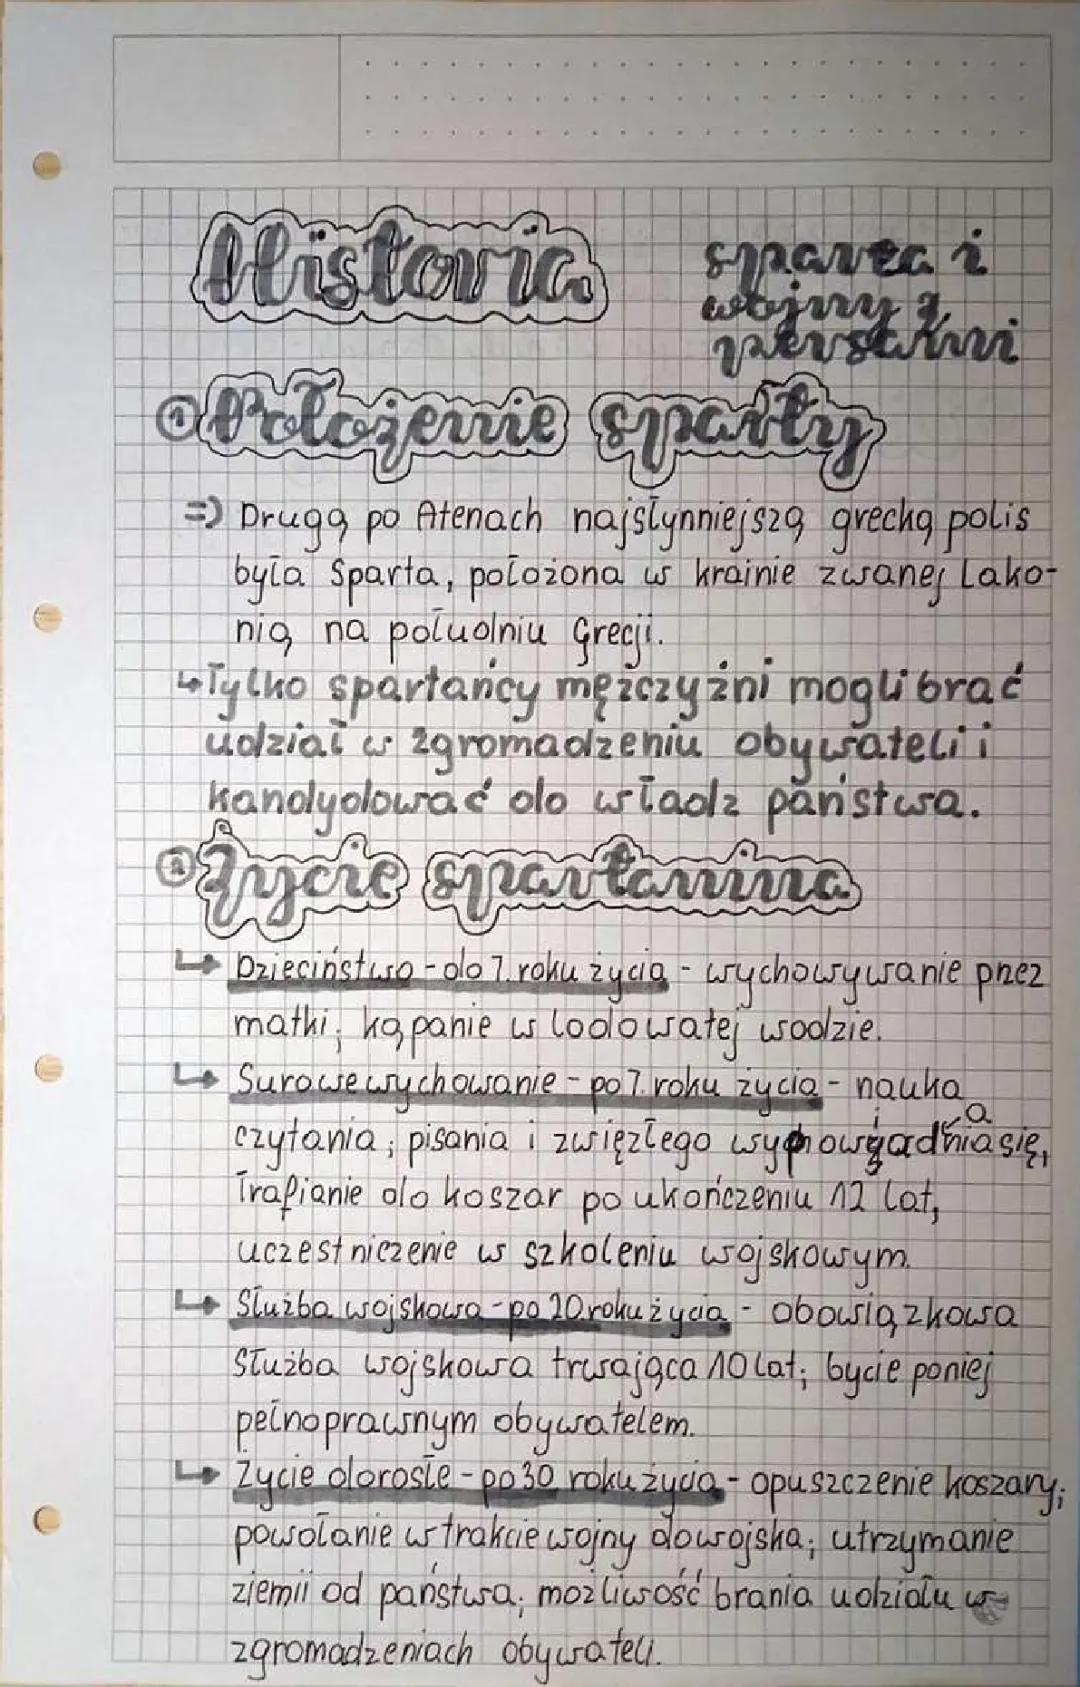 Historia
sparta i
wojny z
persami
① Położenie sparty
=> Drugą po Atenach najsłynniejszą grecką polis
była Sparta, położona w krainie zwanej Lako-
nią na południu Grecji.
↳ Tylko spartańcy mężczyźni mogli brać
udział w zgromadzeniu obywateli i
kandydować do władz państwa.
② Życie spartanina
↳ Dzieciństwo - do 7. roku życia - wychowywanie przez
matki; kąpanie w lodowatej wodzie.
↳ Surowe wychowanie - po 7. roku życia - nauka
czytania; pisania i zwięzłego wypowiadania się,
Trafianie do koszar po ukończeniu 12 lat,
uczestniczenie w szkoleniu wojskowym.
↳ Służba wojskowa - po 20. roku życia - obowiązkowa
służba wojskowa trwająca 10 lat; bycie poniej
pełnoprawnym obywatelem.
↳ Życie dorosłe - po 30 roku życia - opuszczenie koszary;
powołanie w trakcie wojny do wojska; utrzymanie
ziemii od państwa; możliwość brania udziału w
zgromadzeniach obywateli.